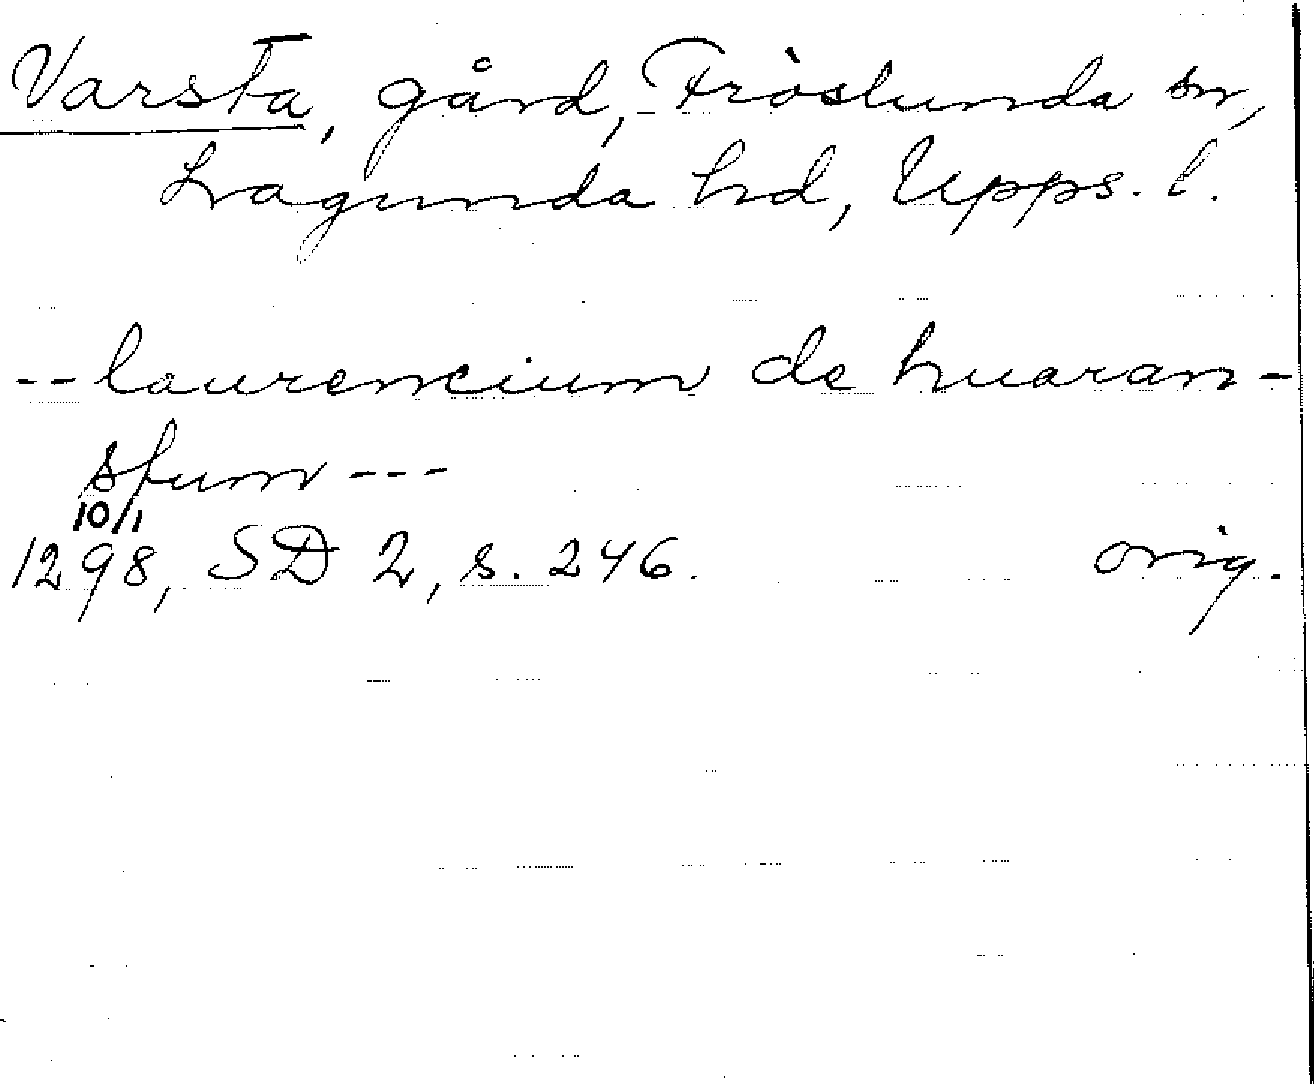 Varsta, gård, Fröslunda sn,
Lagunda hd, Upps. l.
--laurencium de huaran-
stum---
10/1
1298, SD 2, s. 246. orig.